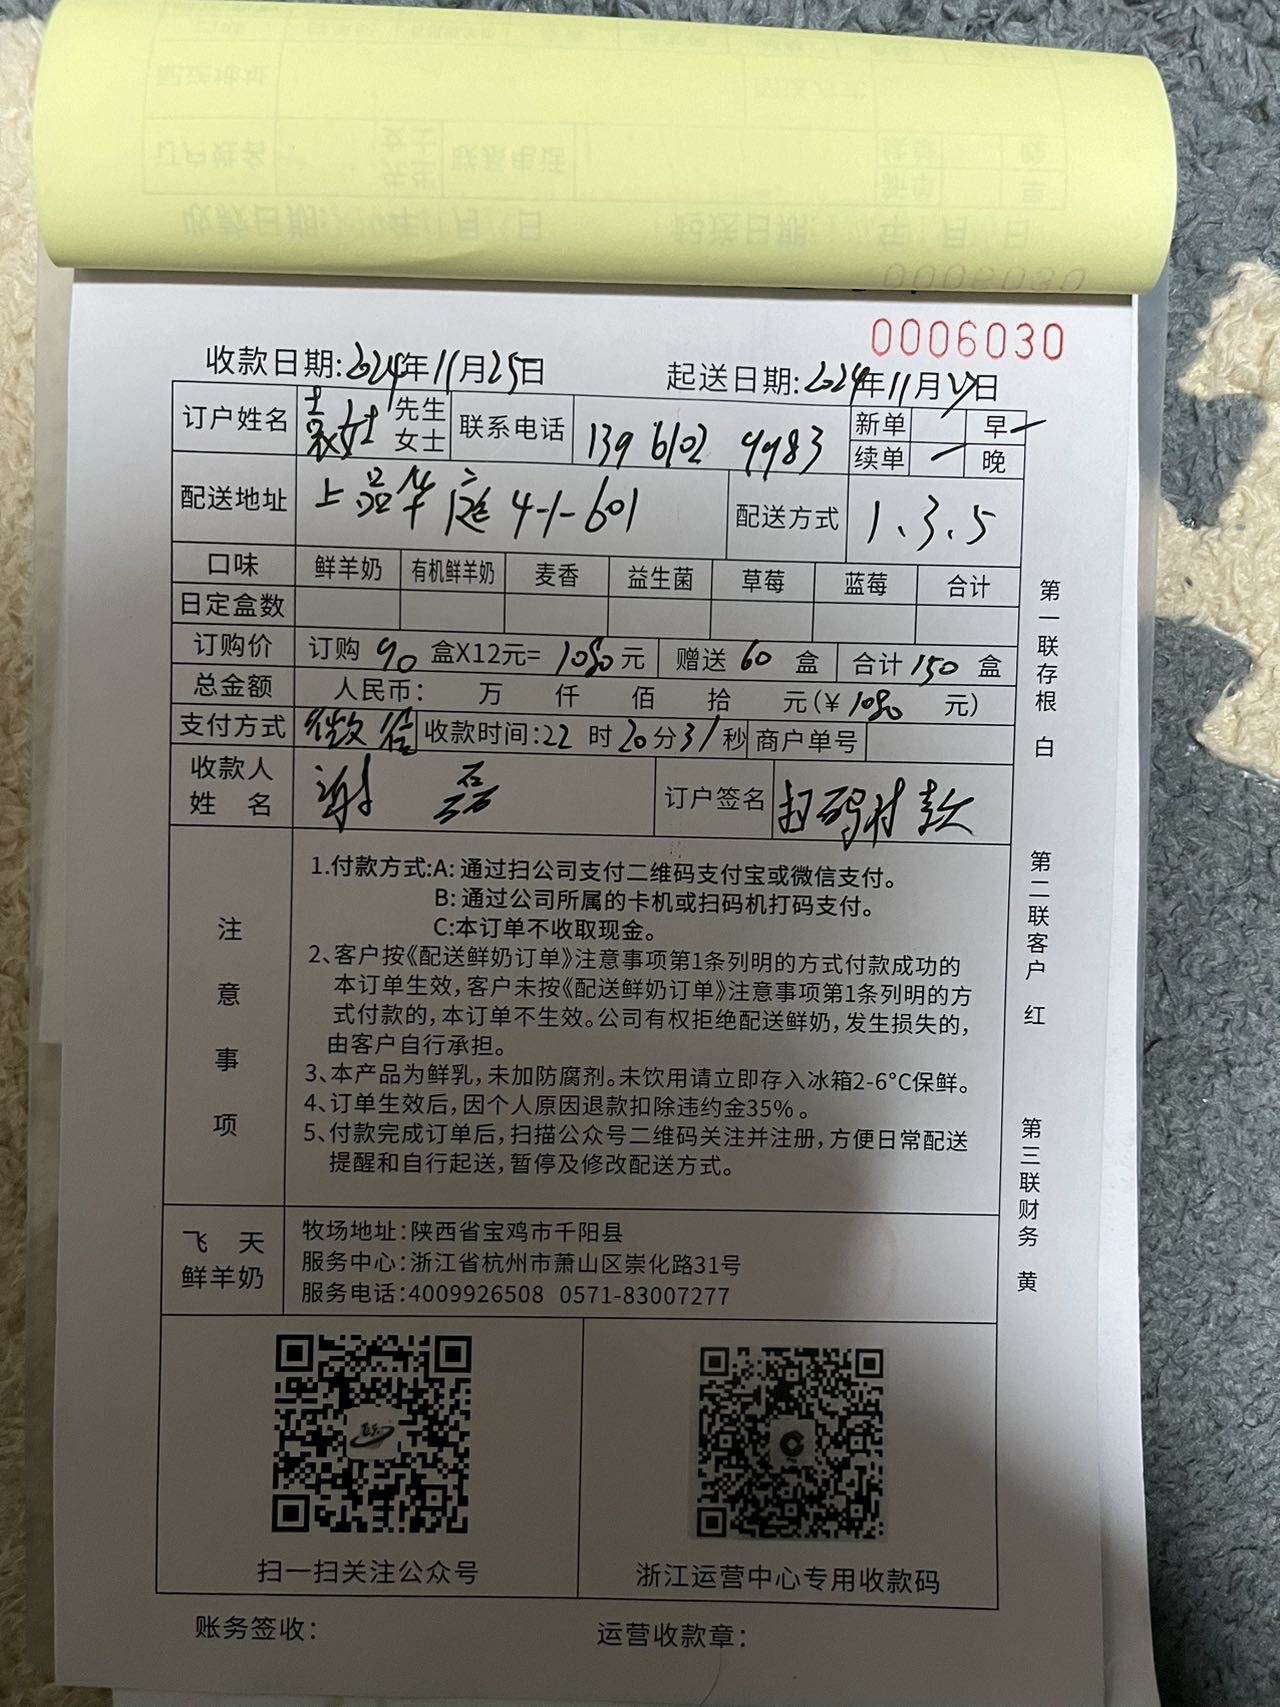 0006030
收款日期:2024年11月25日 起送日期:2024年11月27日
订户姓名 袁女士 先生 女士 联系电话 139 6102 9983 新单 早
续单 晚
配送地址 上品华庭4-1-601 配送方式 1、3、5
口味 鲜羊奶 有机鲜羊奶 麦香 益生菌 草莓 蓝莓 合计
日定盒数
订购价 订购 90 盒X12元= 1080元 赠送 60 盒 合计 150 盒
总金额 人民币: 万 仟 佰 拾 元(¥1080 元)
支付方式 微信 收款时间:22 时 20分31秒 商户单号
收款人 姓 名 谢 磊 订户签名 扫码付款
注意事项
1.付款方式:A: 通过扫公司支付二维码支付宝或微信支付。
B: 通过公司所属的卡机或扫码机打码支付。
C:本订单不收取现金。
2、客户按《配送鲜奶订单》注意事项第1条列明的方式付款成功的
本订单生效,客户未按《配送鲜奶订单》注意事项第1条列明的方
式付款的,本订单不生效。公司有权拒绝配送鲜奶,发生损失的,
由客户自行承担。
3、本产品为鲜乳,未加防腐剂。未饮用请立即存入冰箱2-6°C保鲜。
4、订单生效后,因个人原因退款扣除违约金35%。
5、付款完成订单后,扫描公众号二维码关注并注册,方便日常配送
提醒和自行起送,暂停及修改配送方式。
飞 天 鲜羊奶
牧场地址:陕西省宝鸡市千阳县
服务中心:浙江省杭州市萧山区崇化路31号
服务电话:4009926508 0571-83007277
扫一扫关注公众号 浙江运营中心专用收款码
账务签收: 运营收款章:
第一联存根 白
第二联客户 红
第三联财务 黄